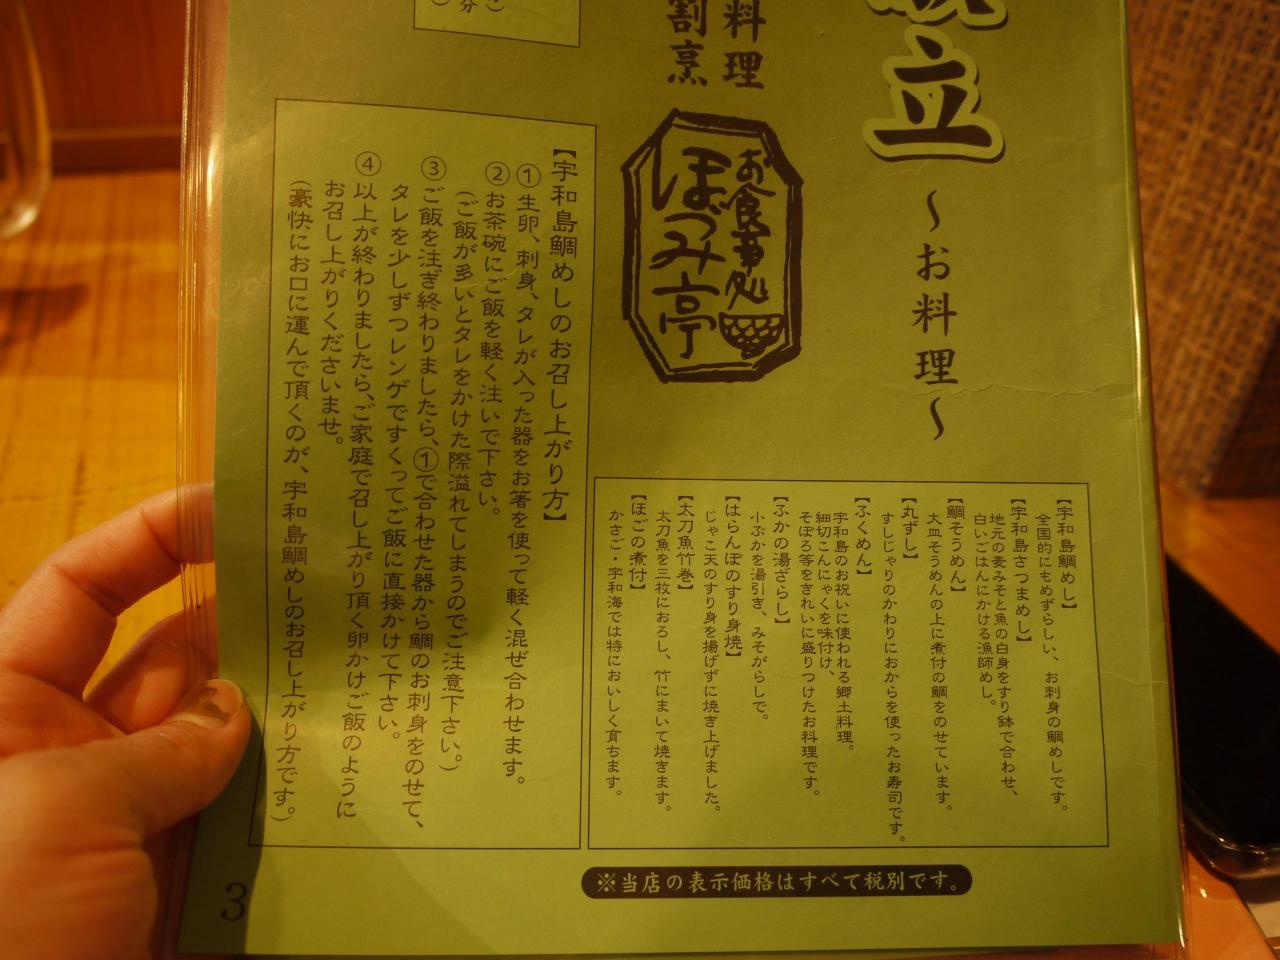 立
〜お料理〜
料理
割烹
お食事処
ほづみ亭
【宇和島鯛めし】
全国的にもめずらしい、お刺身の鯛めしです。
【宇和島さつまめし】
地元の麦みそと魚の白身をすり鉢で合わせ、
白いごはんにかける漁師めし。
【鯛そうめん】
大皿そうめんの上に煮付の鯛をのせています。
【丸ずし】
すしじゃりのかわりにおからを使ったお寿司です。
【ふくめん】
宇和島のお祝いに使われる郷土料理。
細切こんにゃくを味付け、
そぼろ等をきれいに盛りつけたお料理です。
【ふかの湯ざらし】
小ぶかを湯引き、みそがらしで。
【はらんぼのすり身焼】
じゃこ天のすり身を揚げずに焼き上げました。
【太刀魚竹巻】
太刀魚を三枚におろし、竹にまいて焼きます。
【ほごの煮付】
かさご・宇和海では特においしく育ちます。
【宇和島鯛めしのお召し上がり方】
①生卵、刺身、タレが入った器をお箸を使って軽く混ぜ合わせます。
②お茶碗にご飯を軽く注いで下さい。
(ご飯が多いとタレをかけた際溢れてしまうのでご注意下さい。)
③ご飯を注ぎ終わりましたら、①で合わせた器から鯛のお刺身をのせて、
タレを少しずつレンゲですくってご飯に直接かけて下さい。
④以上が終わりましたら、ご家庭で召し上がり頂く卵かけご飯のように
お召し上がりくださいませ。
(豪快にお口に運んで頂くのが、宇和島鯛めしのお召し上がり方です。)
※当店の表示価格はすべて税別です。
3